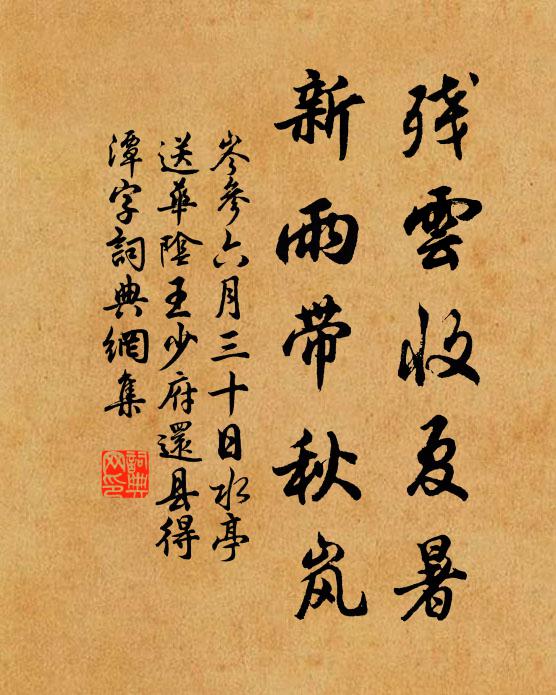 残雲收夏暑
新雨带秋岚
岑參六月三十日水亭
送華陰王少府還县得
潭字詞典網集
詞典网印